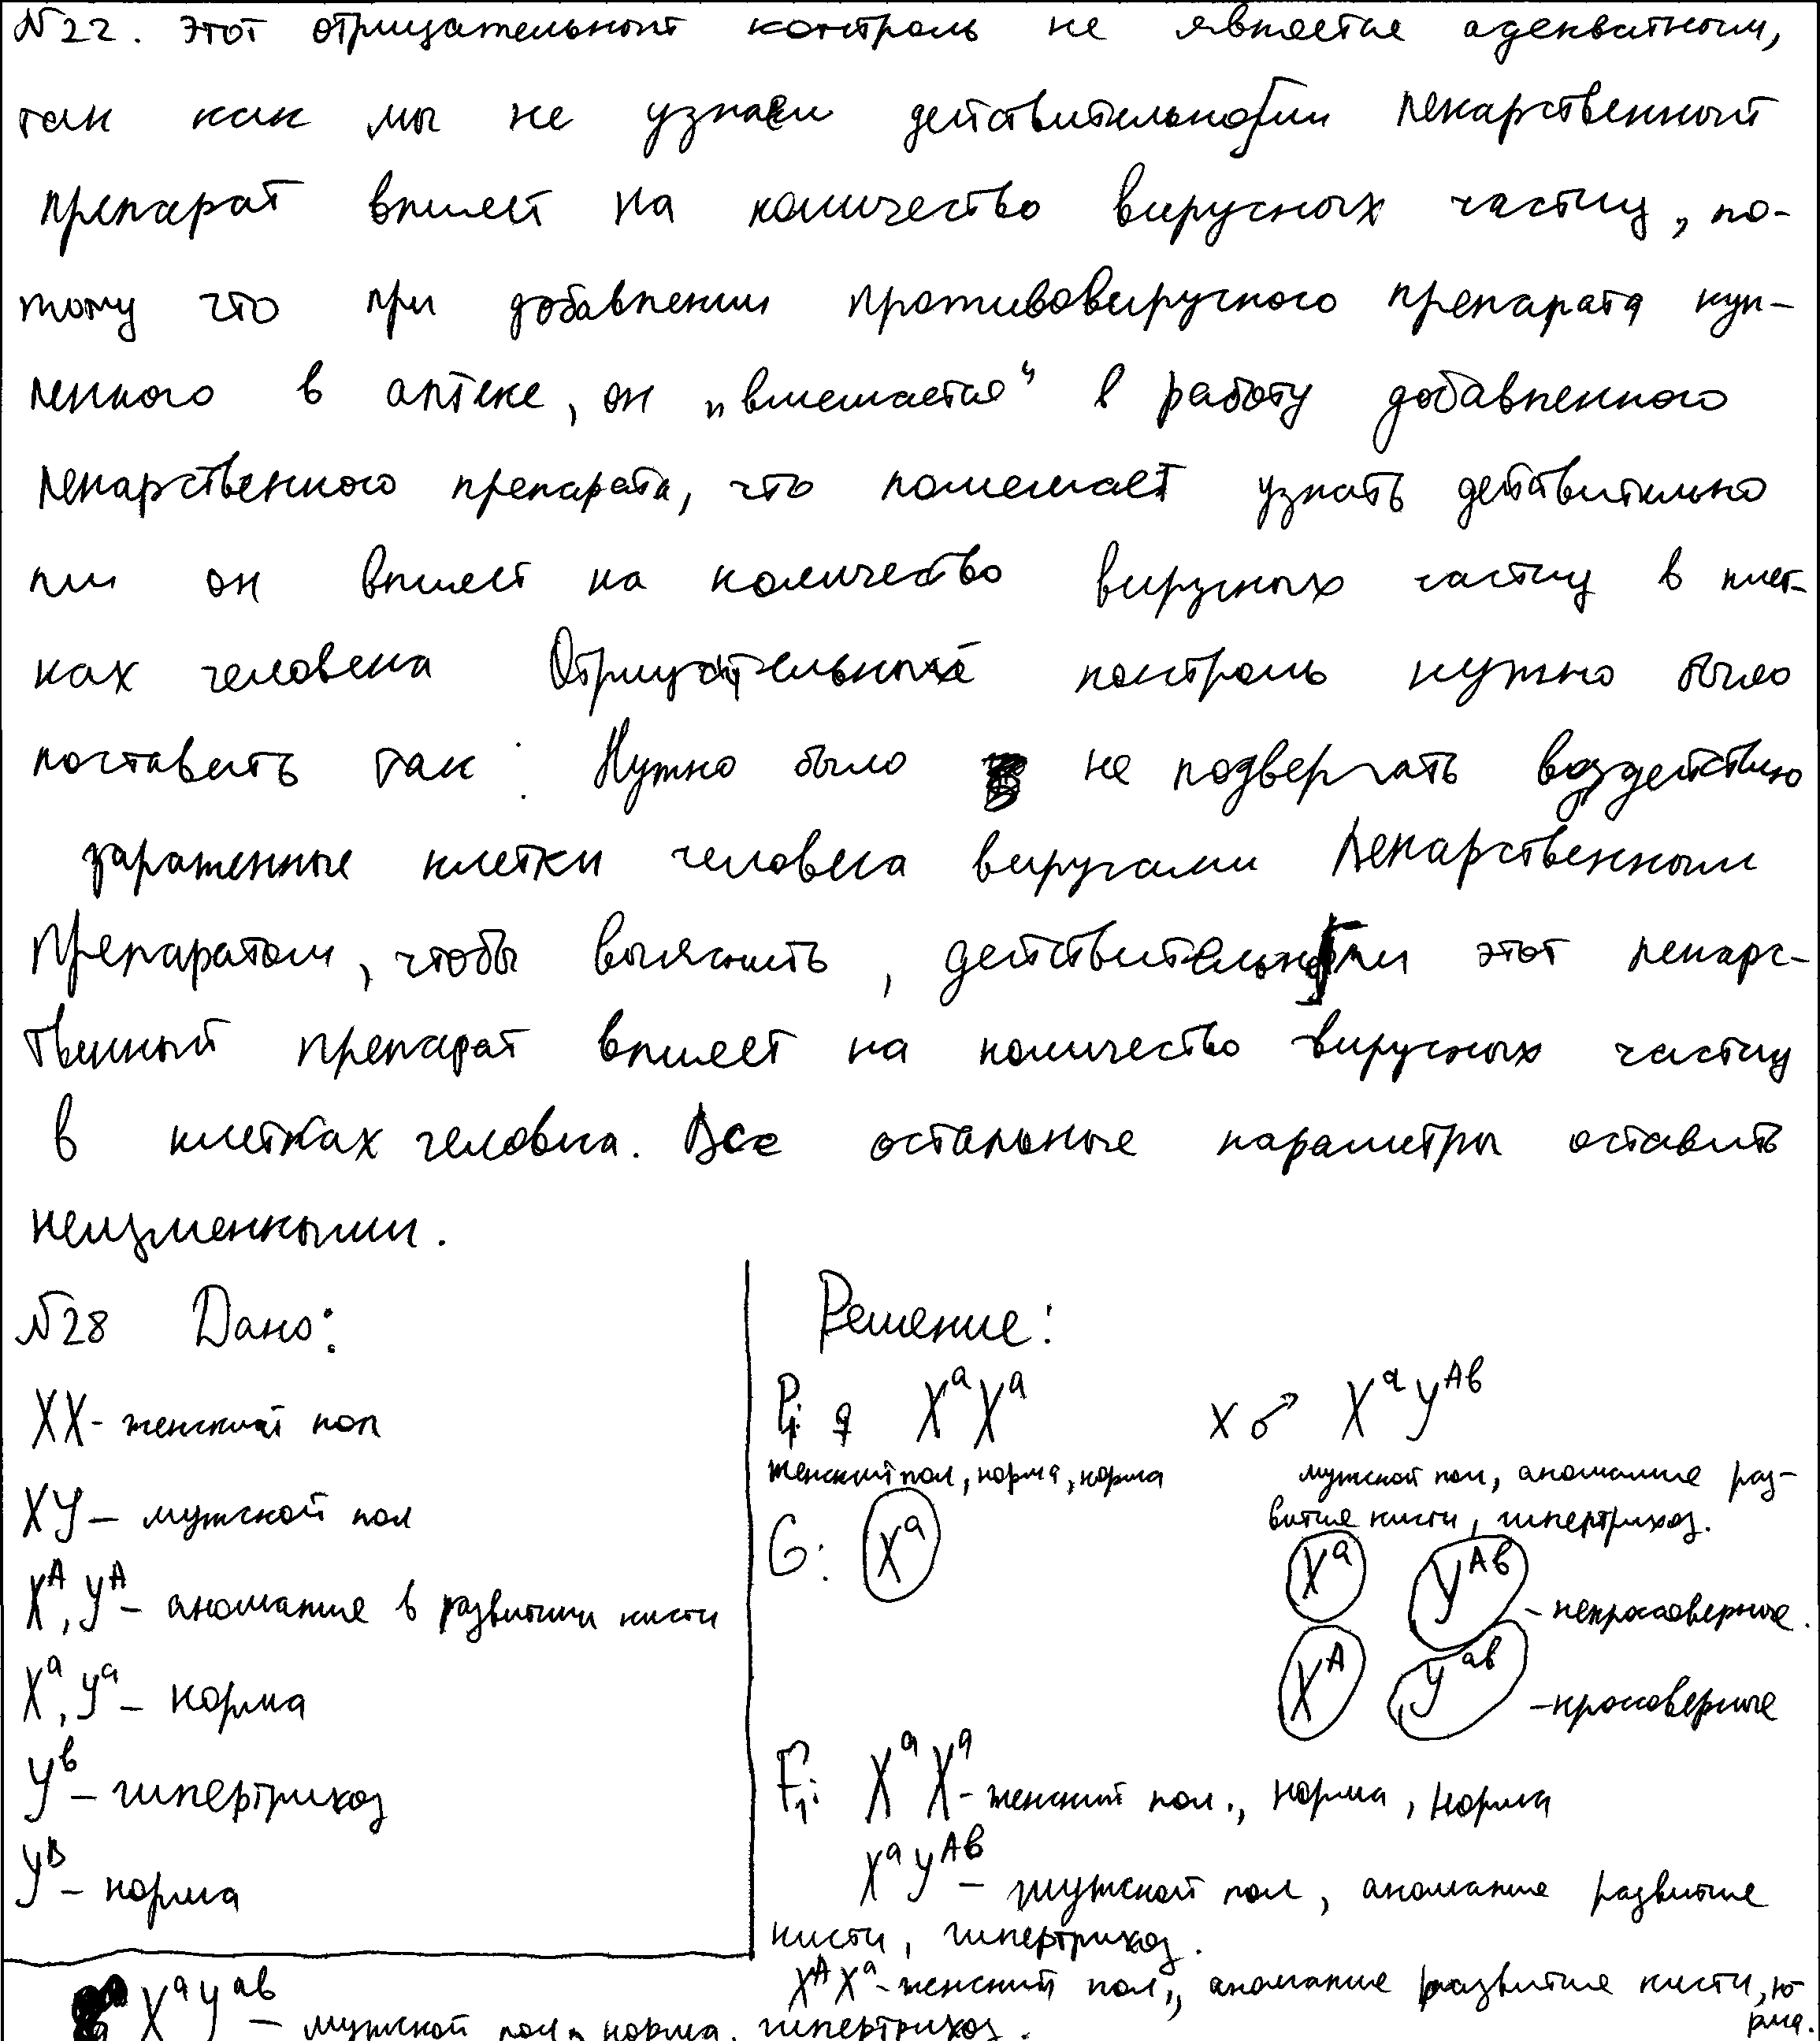 №22. Этот отрицательный контроль не является адекватным,
так как мы не узнаем действительно ли лекарственный
препарат влияет на количество вирусных частиц, по-
тому что при добавлении противовирусного препарата куп-
ленного в аптеке, он „вмешается“ в работу добавленного
лекарственного препарата, что помешает узнать действительно
ли он влияет на количество вирусных частиц в клет-
ках человека Отрицательный контроль нужно было
поставить так: Нужно было не подвергать воздействию
зараженные клетки человека вирусами лекарственным
препаратом, чтобы выяснить, действительно ли этот лекарс-
твенный препарат влияет на количество вирусных частиц
в клетках человека. Все остальные параметры оставить
неизменными.
№28 Дано:
XX - женский пол
XY - мужской пол
X^A, Y^A - аномалие в развитии кисти
X^a, Y^a - норма
Y^b - гипертрихоз
Y^B - норма
Решение:
P1: ♀ X^a X^a x ♂ X^a Y^Ab
женский пол, норма, норма мужской пол, аномалие раз-
витие кисти, гипертрихоз.
G: X^a X^a Y^Ab - некроссоверные.
X^A Y^ab - кроссоверные
F1: X^a X^a - женский пол, норма, норма
X^a Y^Ab - мужской пол, аномалие развитие
кисти, гипертрихоз.
X^A X^a - женский пол, аномалие развитие кисти, но
рма.
X^a Y^ab - мужской пол, норма, гипертрихоз.